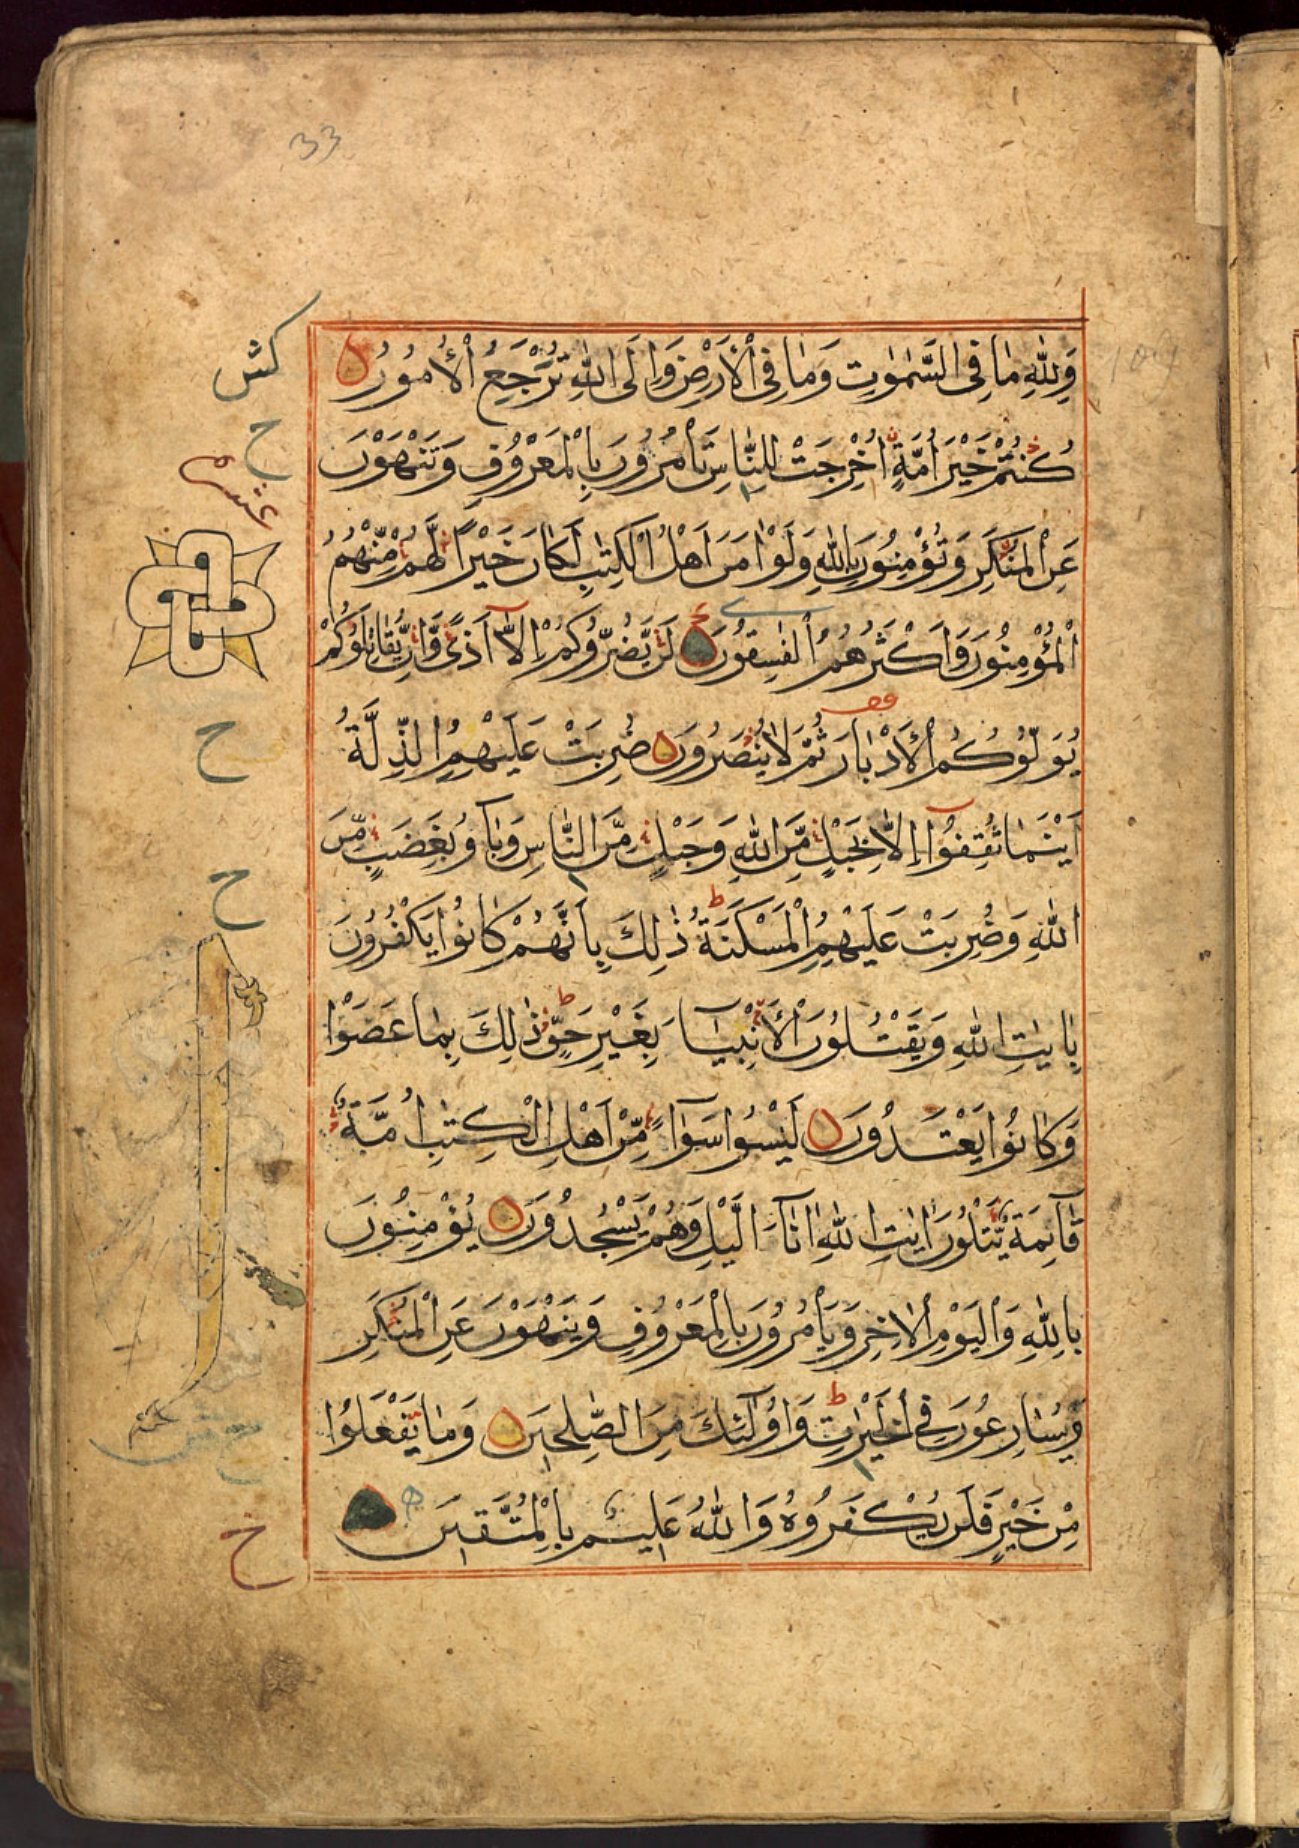 33
109
وَلِلّٰهِ مَا فِى السَّمٰوٰتِ وَمَا فِى الْاَرْضِ وَاِلَى اللّٰهِ تُرْجَعُ الْاُمُوْرُ
كُنْتُمْ خَيْرَ اُمَّةٍ اُخْرِجَتْ لِلنَّاسِ تَأْمُرُوْنَ بِالْمَعْرُوْفِ وَتَنْهَوْنَ
عَنِ الْمُنْكَرِ وَتُؤْمِنُوْنَ بِاللّٰهِ وَلَوْ اٰمَنَ اَهْلُ الْكِتٰبِ لَكَانَ خَيْرًا لَّهُمْ مِّنْهُمُ
الْمُؤْمِنُوْنَ وَاَكْثَرُهُمُ الْفٰسِقُوْنَ لَنْ يَّضُرُّوْكُمْ اِلَّا اَذًى وَّاِنْ يُّقَاتِلُوْكُمْ
يُوَلُّوْكُمُ الْاَدْبَارَ ثُمَّ لَا يُنْصَرُوْنَ ضُرِبَتْ عَلَيْهِمُ الذِّلَّةُ
اَيْنَمَا ثُقِفُوْٓا اِلَّا بِحَبْلٍ مِّنَ اللّٰهِ وَحَبْلٍ مِّنَ النَّاسِ وَبَآءُوْ بِغَضَبٍ مِّنَ
اللّٰهِ وَضُرِبَتْ عَلَيْهِمُ الْمَسْكَنَةُ ذٰلِكَ بِاَنَّهُمْ كَانُوْا يَكْفُرُوْنَ
بِاٰيٰتِ اللّٰهِ وَيَقْتُلُوْنَ الْاَنْۢبِيَآءَ بِغَيْرِ حَقٍّ ذٰلِكَ بِمَا عَصَوْا
وَكَانُوْا يَعْتَدُوْنَ لَيْسُوْا سَوَآءً مِّنْ اَهْلِ الْكِتٰبِ اُمَّةٌ
قَآئِمَةٌ يَّتْلُوْنَ اٰيٰتِ اللّٰهِ اٰنَآءَ الَّيْلِ وَهُمْ يَسْجُدُوْنَ يُؤْمِنُوْنَ
بِاللّٰهِ وَالْيَوْمِ الْاٰخِرِ وَيَأْمُرُوْنَ بِالْمَعْرُوْفِ وَيَنْهَوْنَ عَنِ الْمُنْكَرِ
وَيُسَارِعُوْنَ فِى الْخَيْرٰتِ وَاُولٰٓئِكَ مِنَ الصّٰلِحِيْنَ وَمَا يَفْعَلُوْا
مِنْ خَيْرٍ فَلَنْ يُّكْفَرُوْهُ وَاللّٰهُ عَلِيْمٌ بِالْمُتَّقِيْنَ
ح
ح
ح